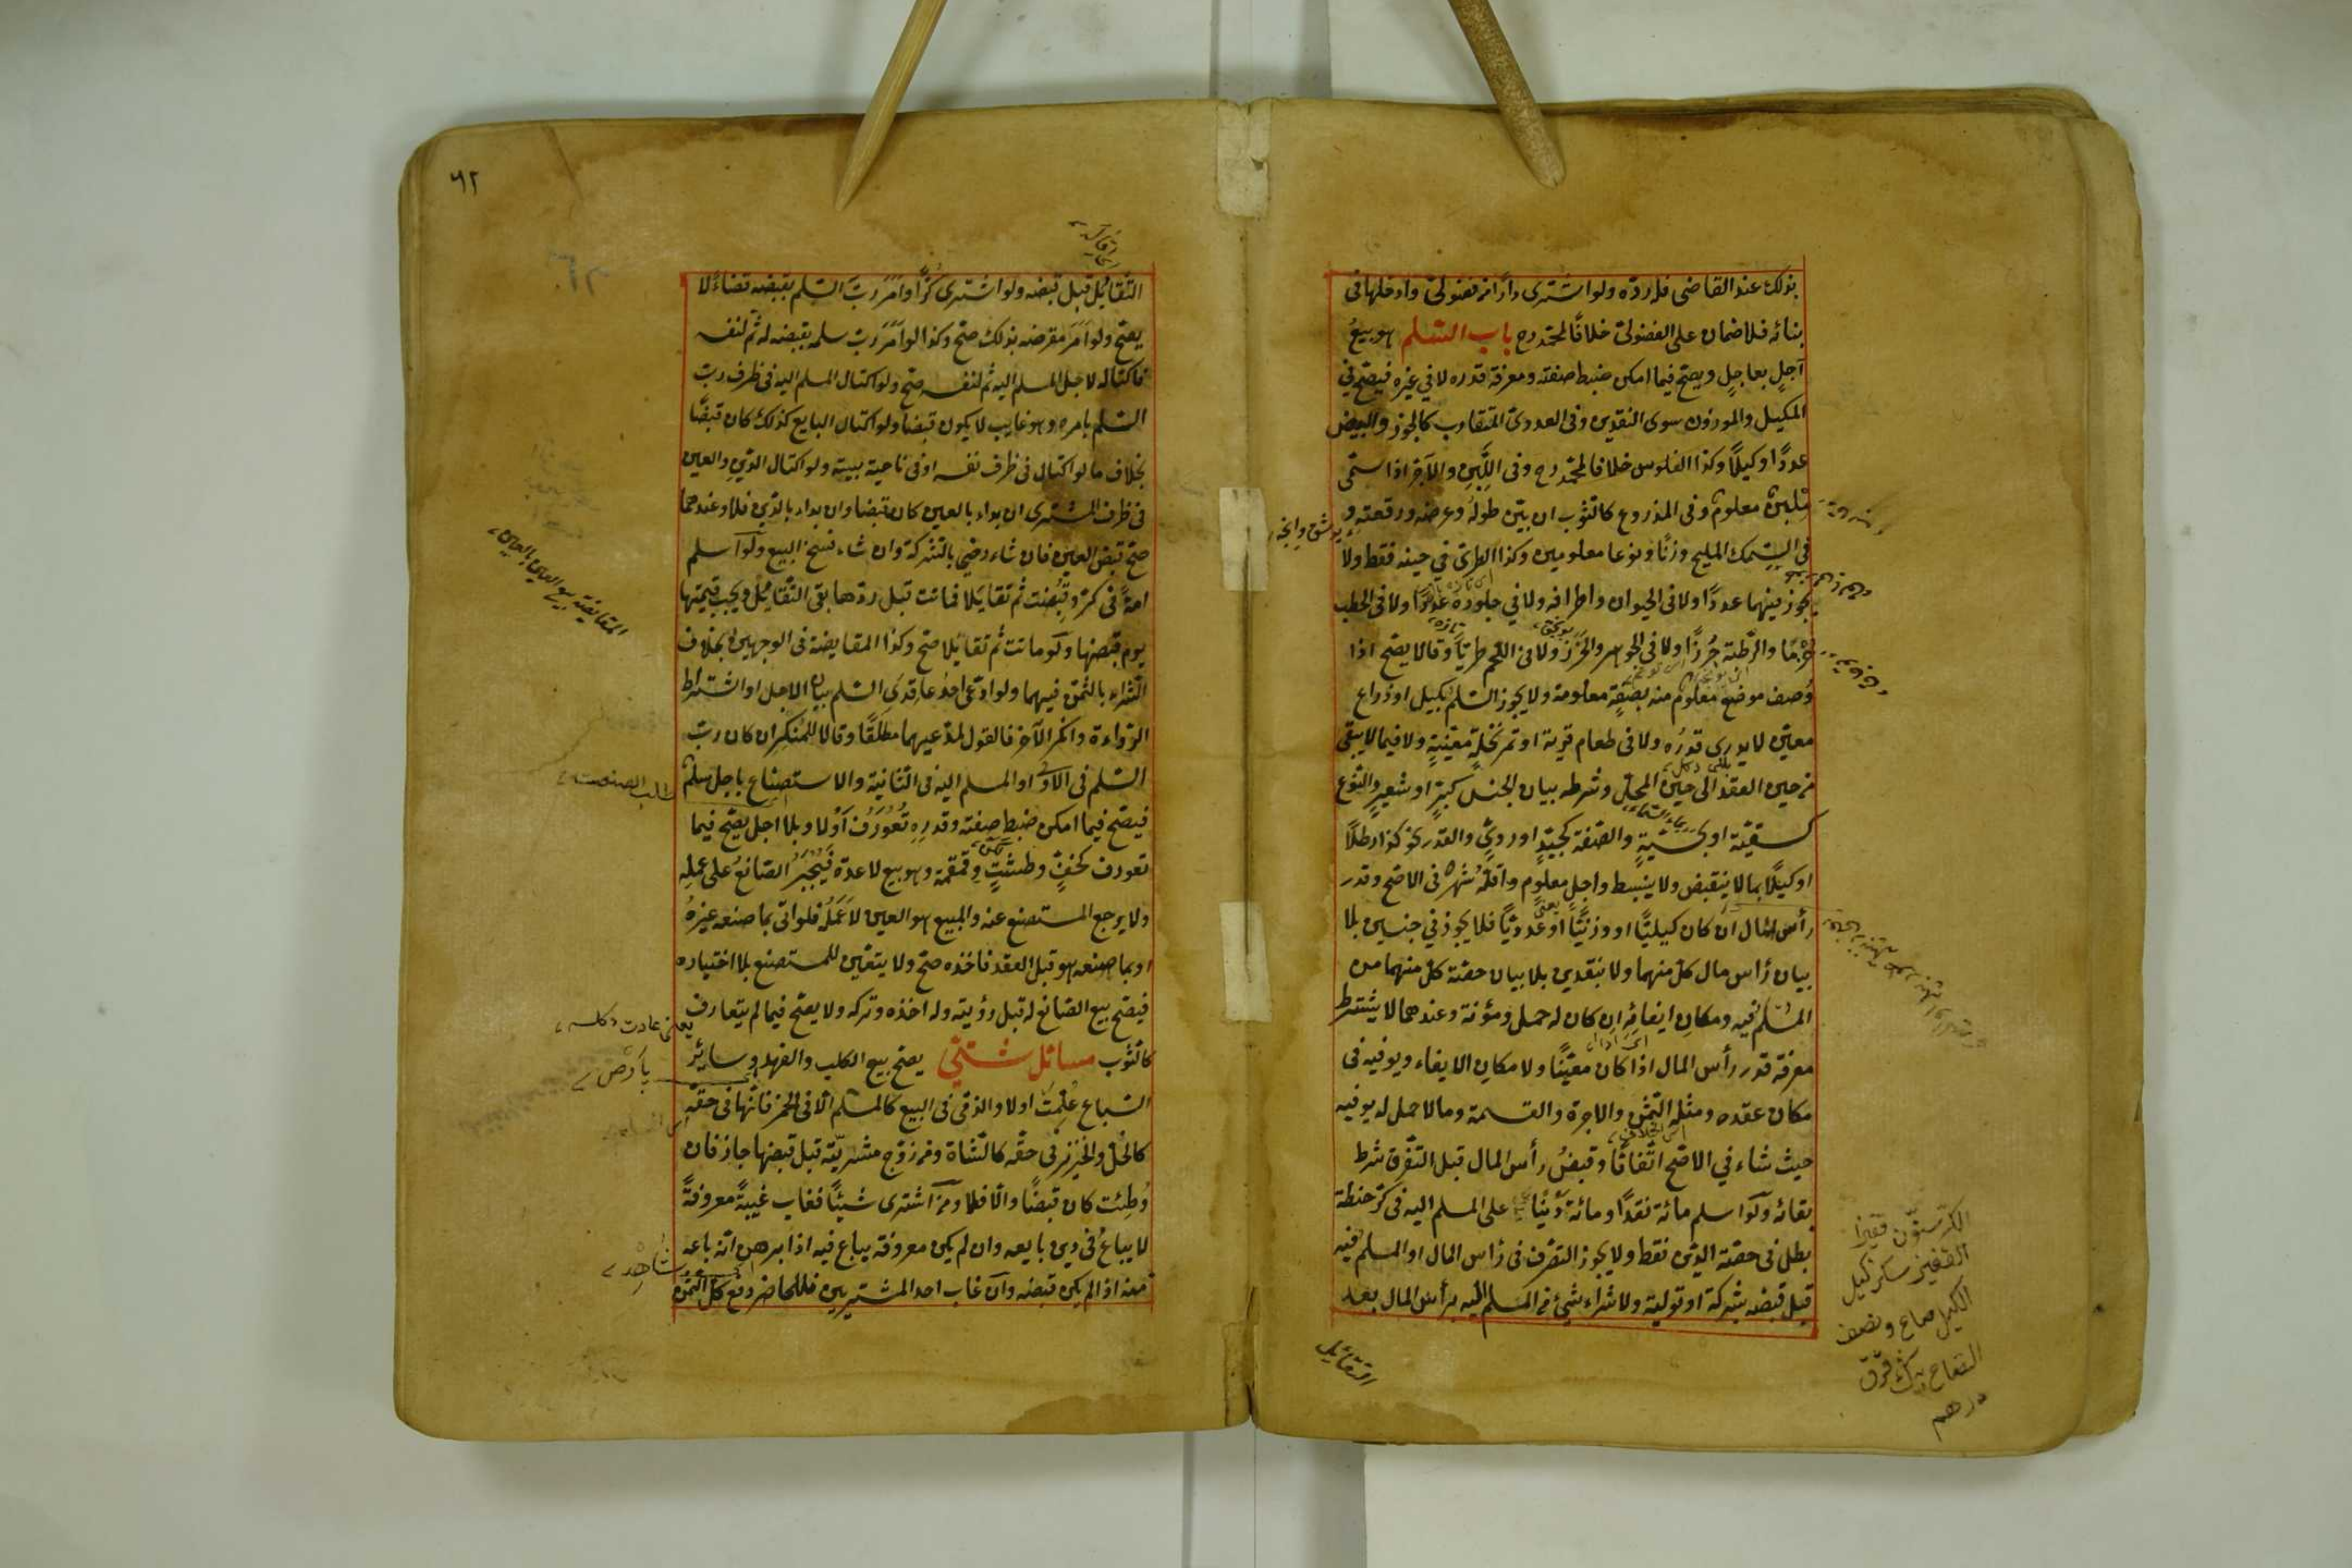 بذلك عند القاضي فله ردّه ولو اشترى دارًا من فضولىّ وادخلها فى
بنائه فلا ضمان على الفضولىّ خلافًا لمحمّد رح باب السّلم هو بيعُ
آجلٍ بعاجلٍ ويصحّ فيما امكن ضبط صفته ومعرفة قدره لا في غيره فيصحّ في
المكيل والموزون سوى النقدين وفى العددىّ المتقارب كالجوز والبيض
عددًا وكيلًا وكذا الفلوس خلافا لمحمّد رح وفى اللَّبِنِ والآجرّ اذا سمّى
مِلبنٌ معلوم وفى المذروع كالثوب ان بيّن طولُه وعرضه ورقعته و
في السّمك المليح وزنًا ونوعا معلومين وكذا الطرىّ في حينه فقط ولا
يجوز فيهما عددًا ولا فى الحيوان واطرافه ولا في جلوده عددًا ولا فى الحطب
حُزمًا والرّطبة جُرزًا ولا فى الجوهر والخَرَز ولا فى اللّحم طريًّا وقالا يصحّ اذا
وُصف موضع معلوم منه بصفةٍ معلومة ولا يجوز السّلم بكيل او ذراع
معيّن لا يدرى قدرُه ولا فى طعام قرية او تمر نخلةٍ معيّنةٍ ولا فيما لا يبقى
من حين العقد الى حين المحلّ وشرطه بيان الجنس كبرّ او شعيرٍ والنّوع
كسقيّة او بخسيّةٍ والصّفة كجيّدٍ او ردىّ والقدر نحو كذا رطلًا
او كيلًا بما لا ينقبض ولا ينبسط واجل معلوم واقلّه شهر فى الاصحّ وقدر
رأس المال ان كان كيليًّا او وزنيًّا او عدديًّا فلا يجوز في جنسين بلا
بيان رأس مال كلّ منهما ولا بنقدين بلا بيان حصّة كلّ منهما من
المسلم فيه ومكان ايفائه ان كان له حمل ومؤنة وعندهما لا يشترط
معرفة قدر رأس المال اذا كان معيّنًا ولا مكان الايفاء ويوفيه فى
مكان عقده ومثله الثّمن والاجرة والقسمة وما لا حمل له يوفيه
حيث شاء في الاصحّ اتّفاقًا وقبضُ رأس المال قبل التّفرق شرط
بقائه ولو اسلم مائة نقدًا ومائة دَيْنًا على المسلم اليه فى كرّ حنطة
بطل فى حصّة الدّين فقط ولا يجوز التصرّف فى رأس المال او المسلم فيه
قبل قبضه بشركة او تولية ولا شراء شئ من المسلم اليه برأس المال بعد
التقايل
الكرّ ستّون قفيزا
القفيز سكز كيل
الكيل صاع ونصف
الصاع بيك قرق
درهم
٦٢
التّقايُل قبل قبضه ولو اشترى كُرًّا وامَرَ ربّ السّلم بقبضه قضاءً لا
يصحّ ولو اَمَرَ مقرضه بذلك صحّ وكذا لو اَمَرَ ربّ سلمه بقبضه له ثُمّ لنفسه
فاكتاله لاجل المسلم اليه ثم لنفسه صحّ ولو اكتال المسلم اليه فى ظرف ربّ
السّلم بامره وهو غايب لا يكون قبضًا ولو اكتال البايع كذلك كان قبضًا
بخلاف ما لو اكتال فى ظرف نفسه او فى ناحية بيته ولو اكتال الدّين والعين
فى ظرف المشترى ان بداء بالعين كان قبضا وان بداء بالدّين فلا وعندهما
صحّ قبض العين فان شاء رضى بالشركة وان شاء فسخ البيع ولو اسلم
امةً فى كرّ وقبُضت ثم تقايَلا فماتت قبل ردّها بقى التّقايُل ويجب قيمتها
يوم قبضها ولو ماتت ثم تقايَلا صحّ وكذا المقايضة فى الوجهين بخلاف
الشّراء بالثّمن فيهما ولو ادّعى احدُ عاقدَى السّلم بيان الاجل او اشتراط
الرّداءة وانكر الآخر فالقول لمدّعيهما مطلقًا وقالا للمنكر ان كان ربّ
السّلم فى الاولى او المسلم اليه فى الثّانية والاستصناع باجل سلم
فيصحّ فيما امكن ضبط صفته وقدرِه تُعُورِفَ اَوْ لا وبلا اجل يصحّ فيما
تعورف كخفٍّ وطشتٍ وقمقمة وهو بيع لا عدة فيُجبَرُ الصّانعُ على عمله
ولا يرجع المستصنع عنه والمبيع هو العين لا عَمَلُه فلو اتى بما صنعه غيرُه
او بما صنعه هو قبل العقد فاخذه صحّ ولا يتعيّن للمستصنع بلا اختياره
فيصحّ بيع الصّانع له قبل رؤيته وله اخذه وتركه ولا يصحّ فيما لم يتعارف
كالثّوب مسائل شتّى يصحّ بيع الكلب والفهد وسائر
السّباع عُلِّمت اولا والذّمّى فى البيع كالمسلم الّا فى الخمر فانّها فى حقّه
كالخلّ والخنزير فى حقّه كالشّاة ومن زوّج مشريّته قبل قبضها جاز فان
وُطئت كان قبضًا والّا فلا ومن اشترى شيئًا فغاب غيبةً معروفةً
لا يباعُ فى دين بايعه وان لم يكن معروفة يباع فيه اذا برهن انّه باعه
منه اذا لم يكن قبضه وان غاب احد المشتريين فللحاضر دفع كلّ الثّمن
المقايضة بيع العين بالعين
طلب الصنعت
يعنى عادت دكلسه
پارص
شاهد